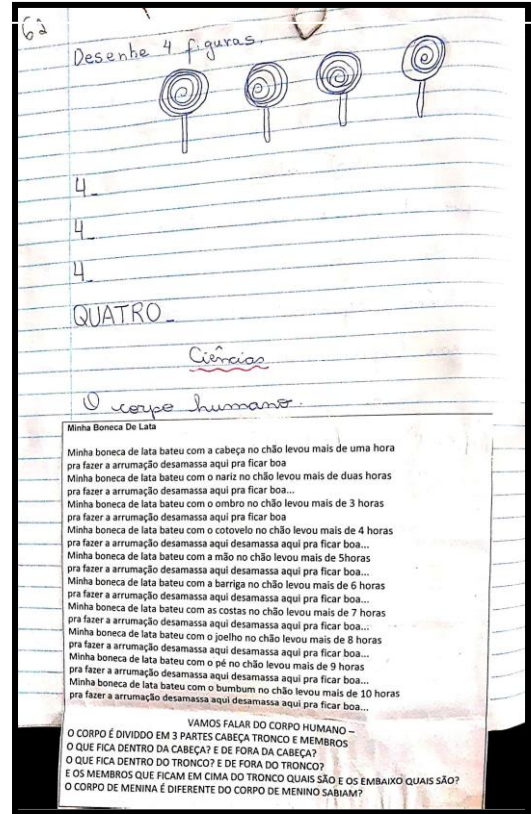 6ª
Desenhe 4 figuras.
4_
4_
4_
QUATRO_
Ciências
O corpo humano.
Minha Boneca De Lata
Minha boneca de lata bateu com a cabeça no chão levou mais de uma hora
pra fazer a arrumação desamassa aqui pra ficar boa
Minha boneca de lata bateu com o nariz no chão levou mais de duas horas
pra fazer a arrumação desamassa aqui pra ficar boa...
Minha boneca de lata bateu com o ombro no chão levou mais de 3 horas
pra fazer a arrumação desamassa aqui pra ficar boa
Minha boneca de lata bateu com o cotovelo no chão levou mais de 4 horas
pra fazer a arrumação desamassa aqui desamassa aqui pra ficar boa...
Minha boneca de lata bateu com a mão no chão levou mais de 5horas
pra fazer a arrumação desamassa aqui desamassa aqui pra ficar boa...
Minha boneca de lata bateu com a barriga no chão levou mais de 6 horas
pra fazer a arrumação desamassa aqui desamassa aqui pra ficar boa...
Minha boneca de lata bateu com as costas no chão levou mais de 7 horas
pra fazer a arrumação desamassa aqui desamassa aqui pra ficar boa...
Minha boneca de lata bateu com o joelho no chão levou mais de 8 horas
pra fazer a arrumação desamassa aqui desamassa aqui pra ficar boa...
Minha boneca de lata bateu com o pé no chão levou mais de 9 horas
pra fazer a arrumação desamassa aqui desamassa aqui pra ficar boa...
Minha boneca de lata bateu com o bumbum no chão levou mais de 10 horas
pra fazer a arrumação desamassa aqui desamassa aqui pra ficar boa...
VAMOS FALAR DO CORPO HUMANO –
O CORPO É DIVIDDO EM 3 PARTES CABEÇA TRONCO E MEMBROS
O QUE FICA DENTRO DA CABEÇA? E DE FORA DA CABEÇA?
O QUE FICA DENTRO DO TRONCO? E DE FORA DO TRONCO?
E OS MEMBROS QUE FICAM EM CIMA DO TRONCO QUAIS SÃO E OS EMBAIXO QUAIS SÃO?
O CORPO DE MENINA É DIFERENTE DO CORPO DE MENINO SABIAM?